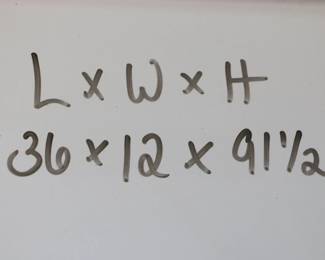 L x W x H
36 x 12 x 91 1/2